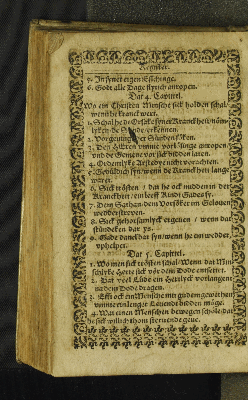 Register.
5. In syner eigen
6. Godt alle Dage flytich anropen.
Dat 4. Capittel.
Wo ein Christen Mensche sick holden schal/
wenn he kranck wert.
1. Schal he de Orsake syner Kranckheit/nömlyken de Sünde/erkennen.
2. Vorgevinge der Sünden söken.
3. Den HEren umme vorlenginge anropen
und de Gemene vor sick bidden laten.
4. Ordentlyke Arstedye nicht vorachten.
5. Geduldich syn/wenn de Kranckheit lange
waret.
6. Sick trösten / dat he ock midden in der
Kranckheit/ein leeff Kindt Gades sy.
7. Dem Sathan dem Vorsöker im Gelouen
wedderstreuen.
8. Sick gehorsamlyck ertzeigen / wenn dat
stündeken dar ys.
9. Gade danckbar syn/wenn he en wedder
vphelpet.
Dat 5. Capittel.
1. Wo men sick trösten schal/Wenn dat Minschlyke Herte sick vör dem Dode entsettet.
2. Dat veel Lüde ein Hertlyck vorlangent
na dem Dode dragen.
3. Effte ock ein Mensche mit gudem geweten
umme ein
4. Wat einen Menschen bewegen schole/dat
he sick willich thom steruende geue.